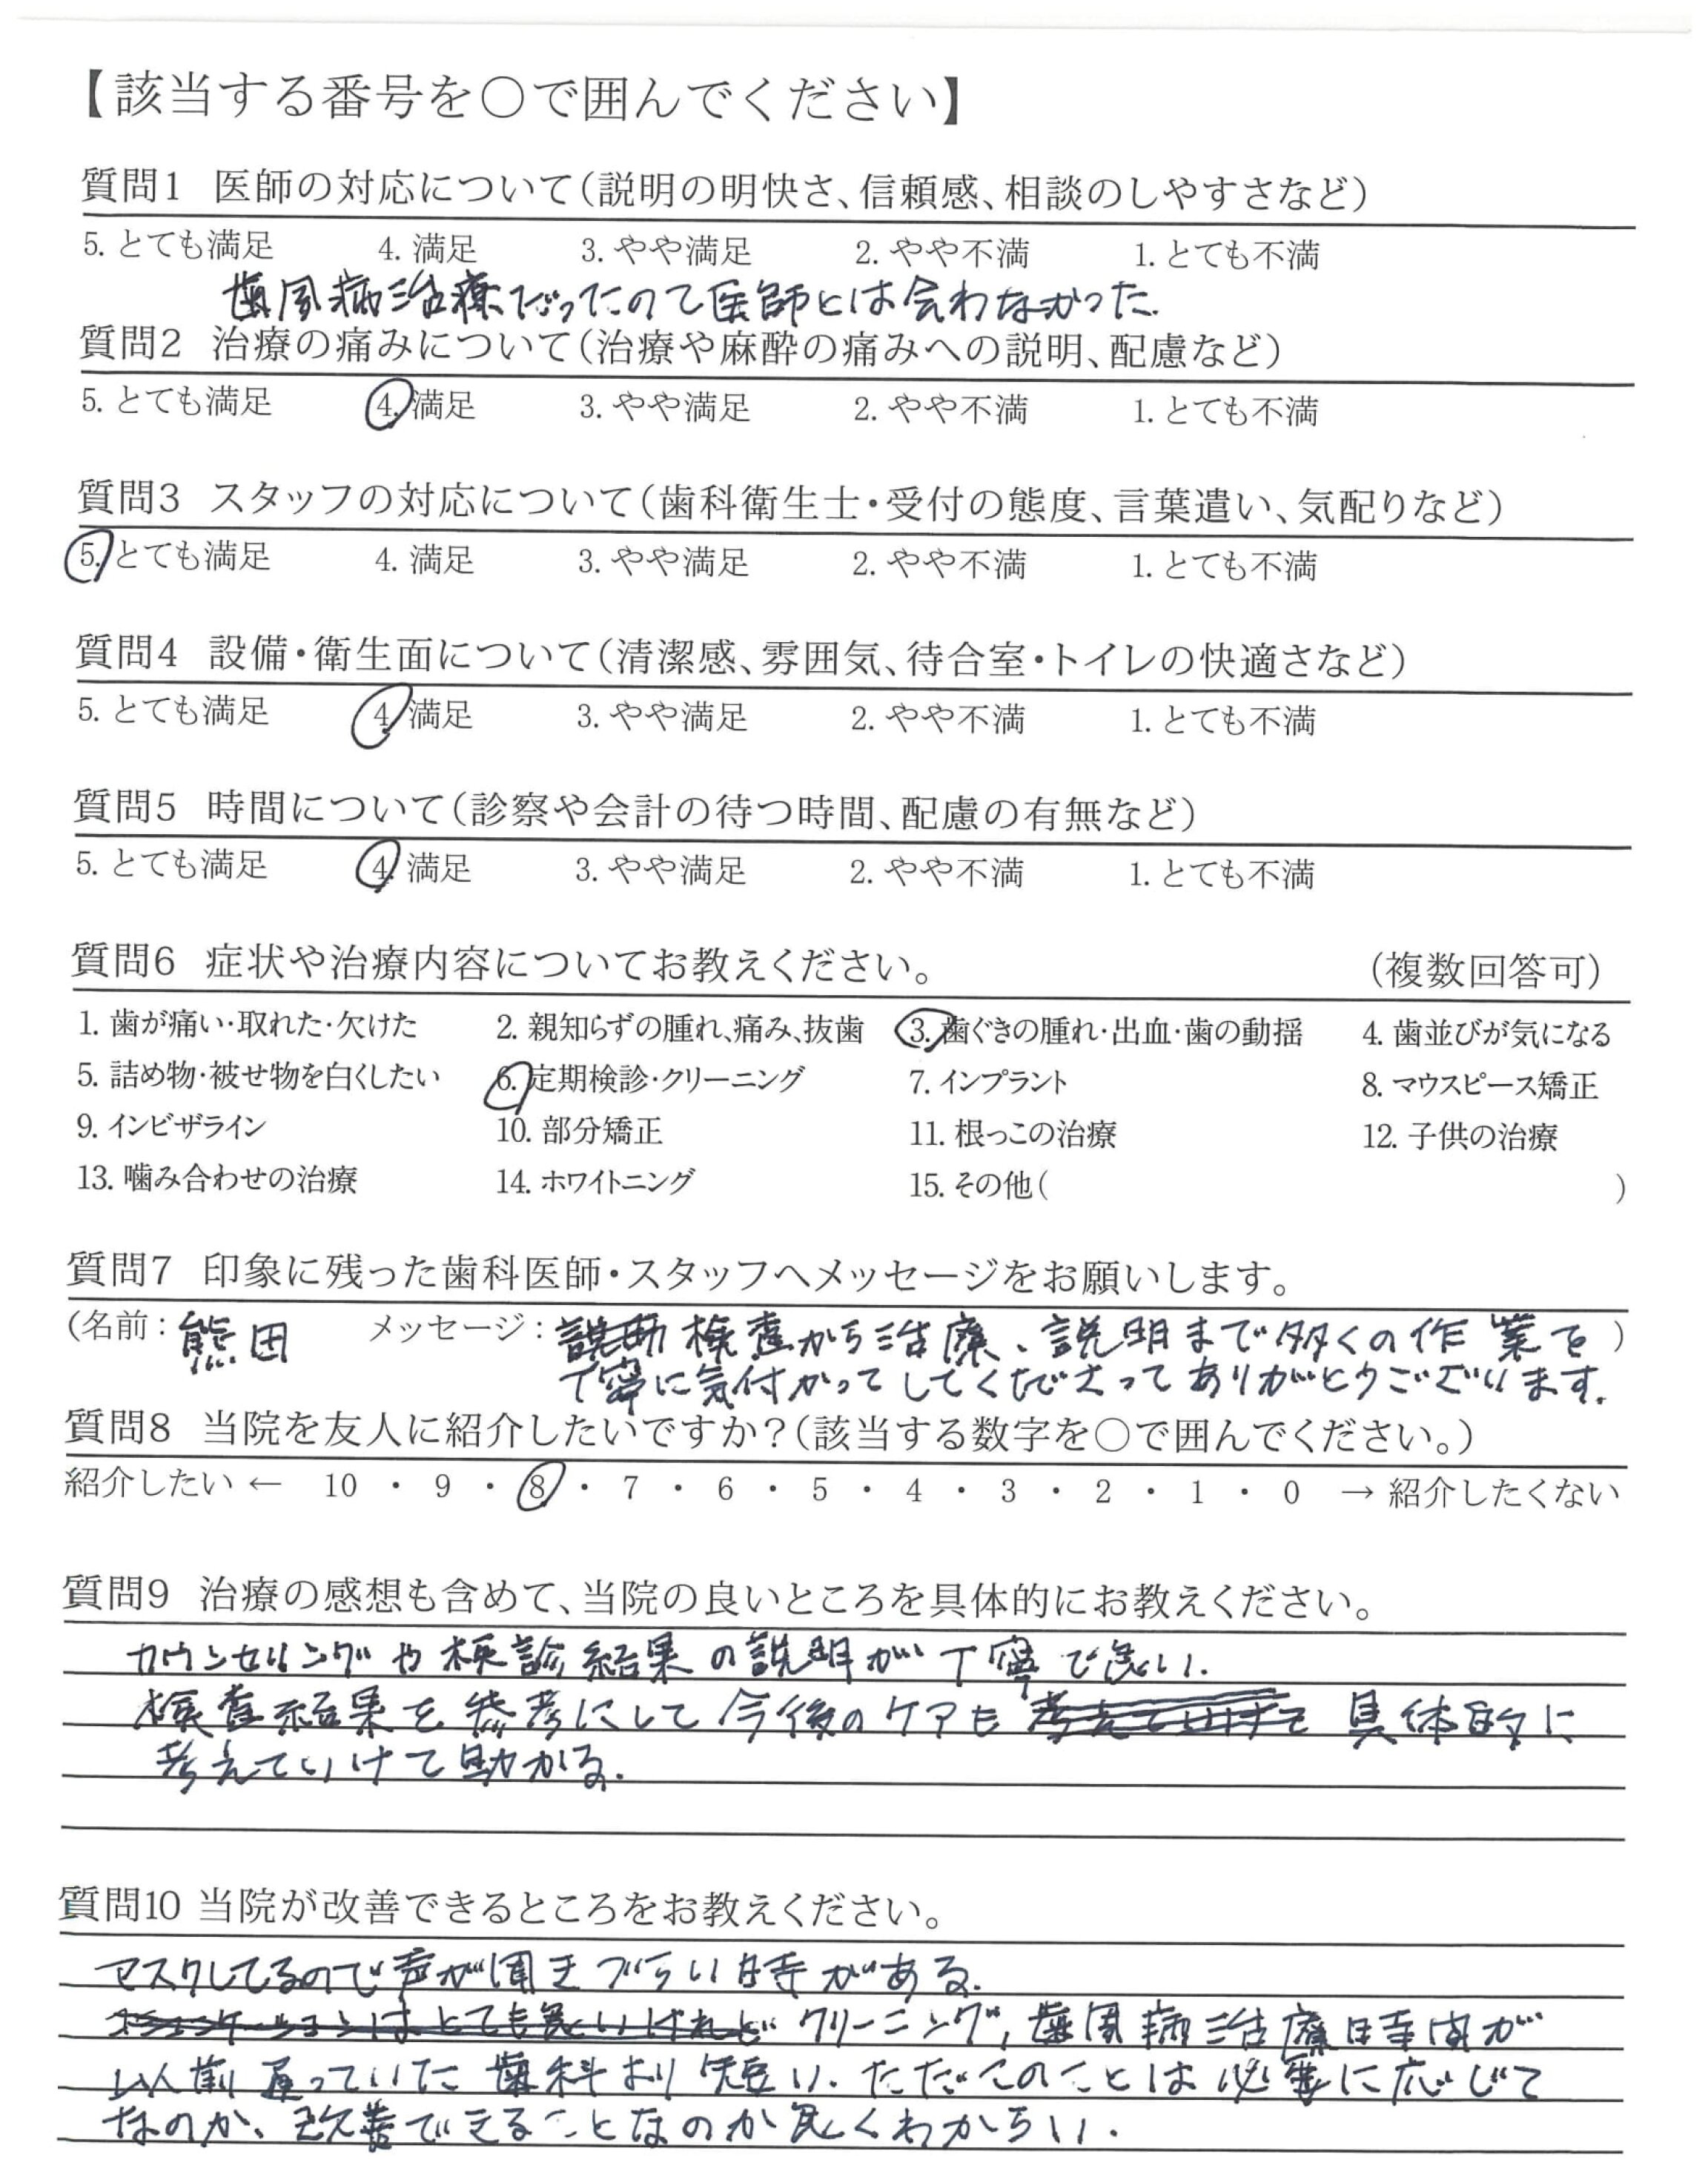 【該当する番号を○で囲んでください】
質問1 医師の対応について(説明の明快さ、信頼感、相談のしやすさなど)
5. とても満足 4. 満足 3. やや満足 2. やや不満 1. とても不満
歯周病治療だったので医師とは会わなかった.
質問2 治療の痛みについて(治療や麻酔の痛みへの説明、配慮など)
5. とても満足 4. 満足 3. やや満足 2. やや不満 1. とても不満
質問3 スタッフの対応について(歯科衛生士・受付の態度、言葉遣い、気配りなど)
5. とても満足 4. 満足 3. やや満足 2. やや不満 1. とても不満
質問4 設備・衛生面について(清潔感、雰囲気、待合室・トイレの快適さなど)
5. とても満足 4. 満足 3. やや満足 2. やや不満 1. とても不満
質問5 時間について(診察や会計の待つ時間、配慮の有無など)
5. とても満足 4. 満足 3. やや満足 2. やや不満 1. とても不満
質問6 症状や治療内容についてお教えください。 (複数回答可)
1. 歯が痛い・取れた・欠けた 2. 親知らずの腫れ、痛み、抜歯 3. 歯ぐきの腫れ・出血・歯の動揺 4. 歯並びが気になる
5. 詰め物・被せ物を白くしたい 6. 定期検診・クリーニング 7. インプラント 8. マウスピース矯正
9. インビザライン 10. 部分矯正 11. 根っこの治療 12. 子供の治療
13. 噛み合わせの治療 14. ホワイトニング 15. その他( )
質問7 印象に残った歯科医師・スタッフへメッセージをお願いします。
(名前: 熊田 メッセージ: 検査から治療、説明まで多くの作業を )
丁寧に気付かってしてくださってありがとうございます.
質問8 当院を友人に紹介したいですか?(該当する数字を○で囲んでください。)
紹介したい ← 10 ・ 9 ・ 8 ・ 7 ・ 6 ・ 5 ・ 4 ・ 3 ・ 2 ・ 1 ・ 0 → 紹介したくない
質問9 治療の感想も含めて、当院の良いところを具体的にお教えください。
カウンセリングや検診結果の説明が丁寧で良い.
検査結果を参考にして今後のケアも 具体的に
考えていけて助かる.
質問10 当院が改善できるところをお教えください。
マスクしてるので声が聞きづらい時がある.
クリーニング, 歯周病治療時間が
以前通っていた歯科より短い. ただこのことは必要に応じて
なのか、改善できることなのか良くわからい.